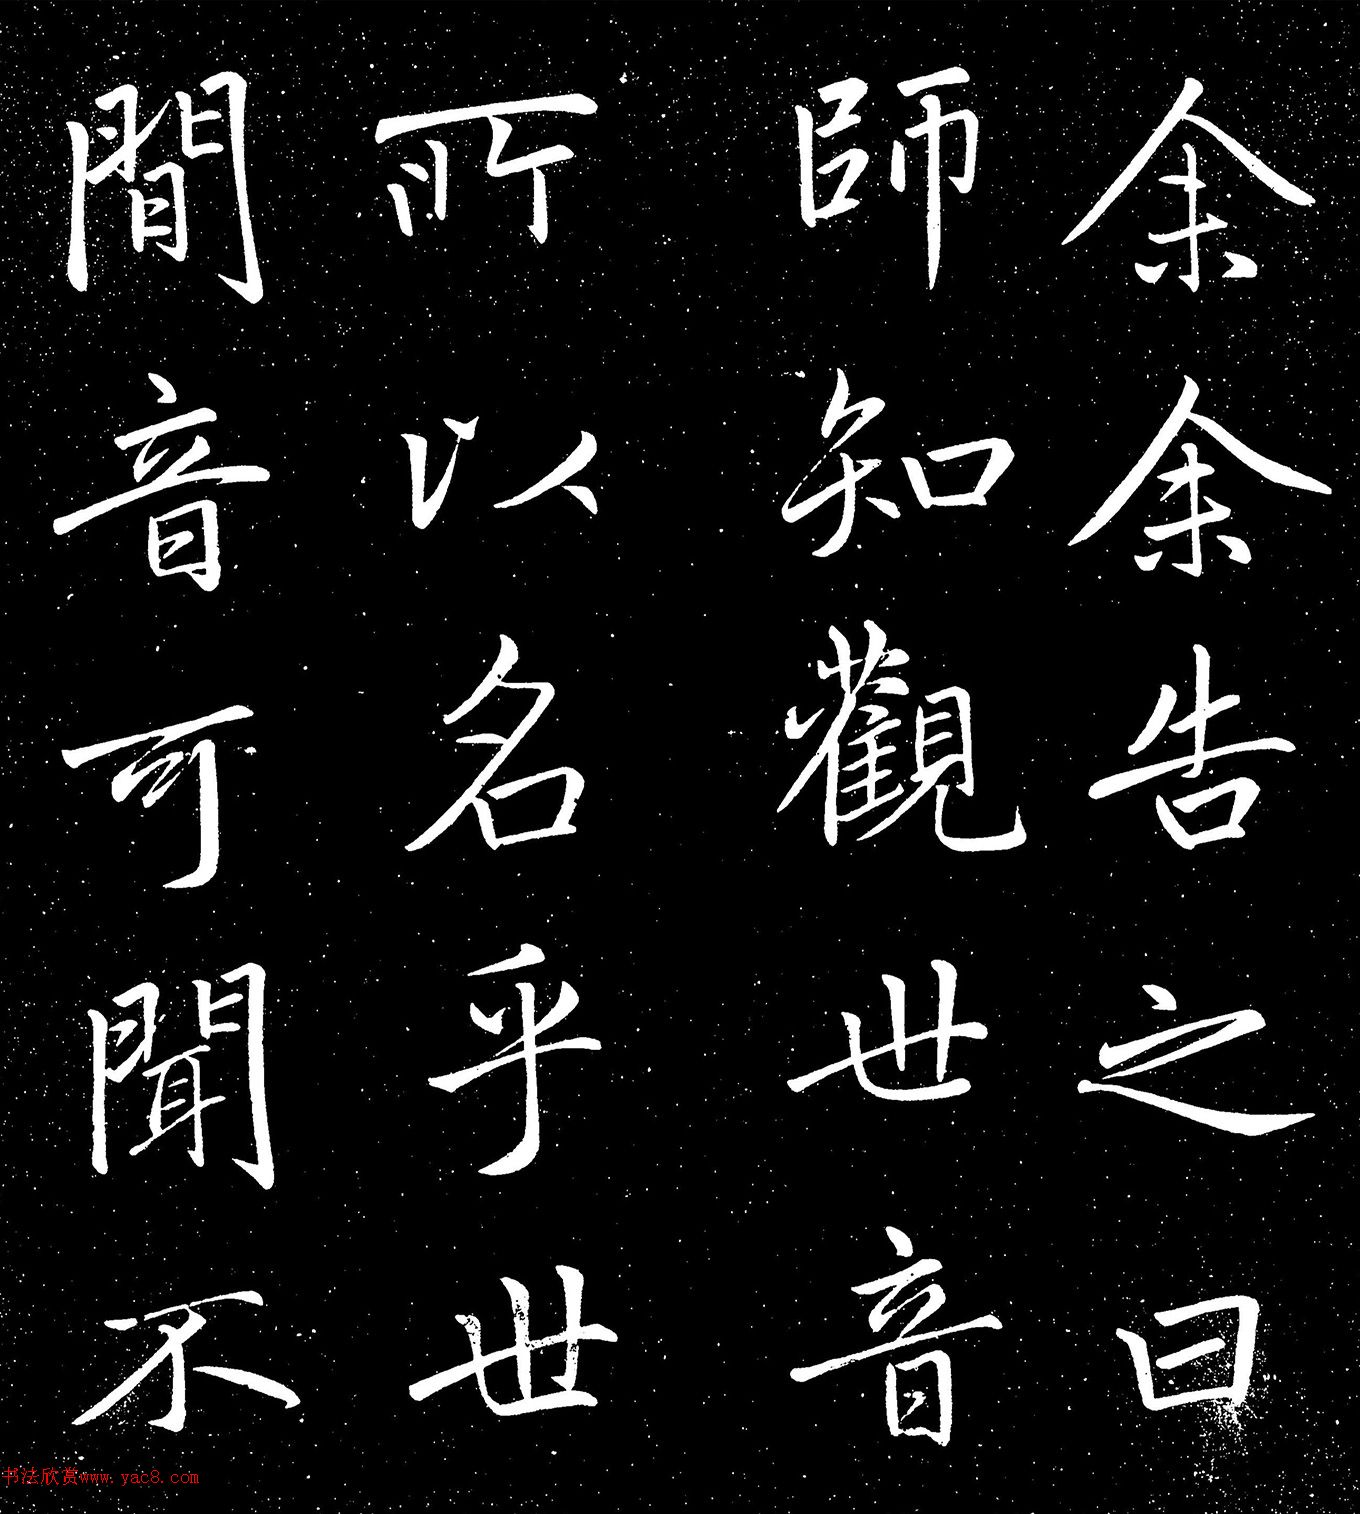 余余告之曰
師知觀世音
所以名乎世
間音可聞不
书法欣赏www.yac8.com